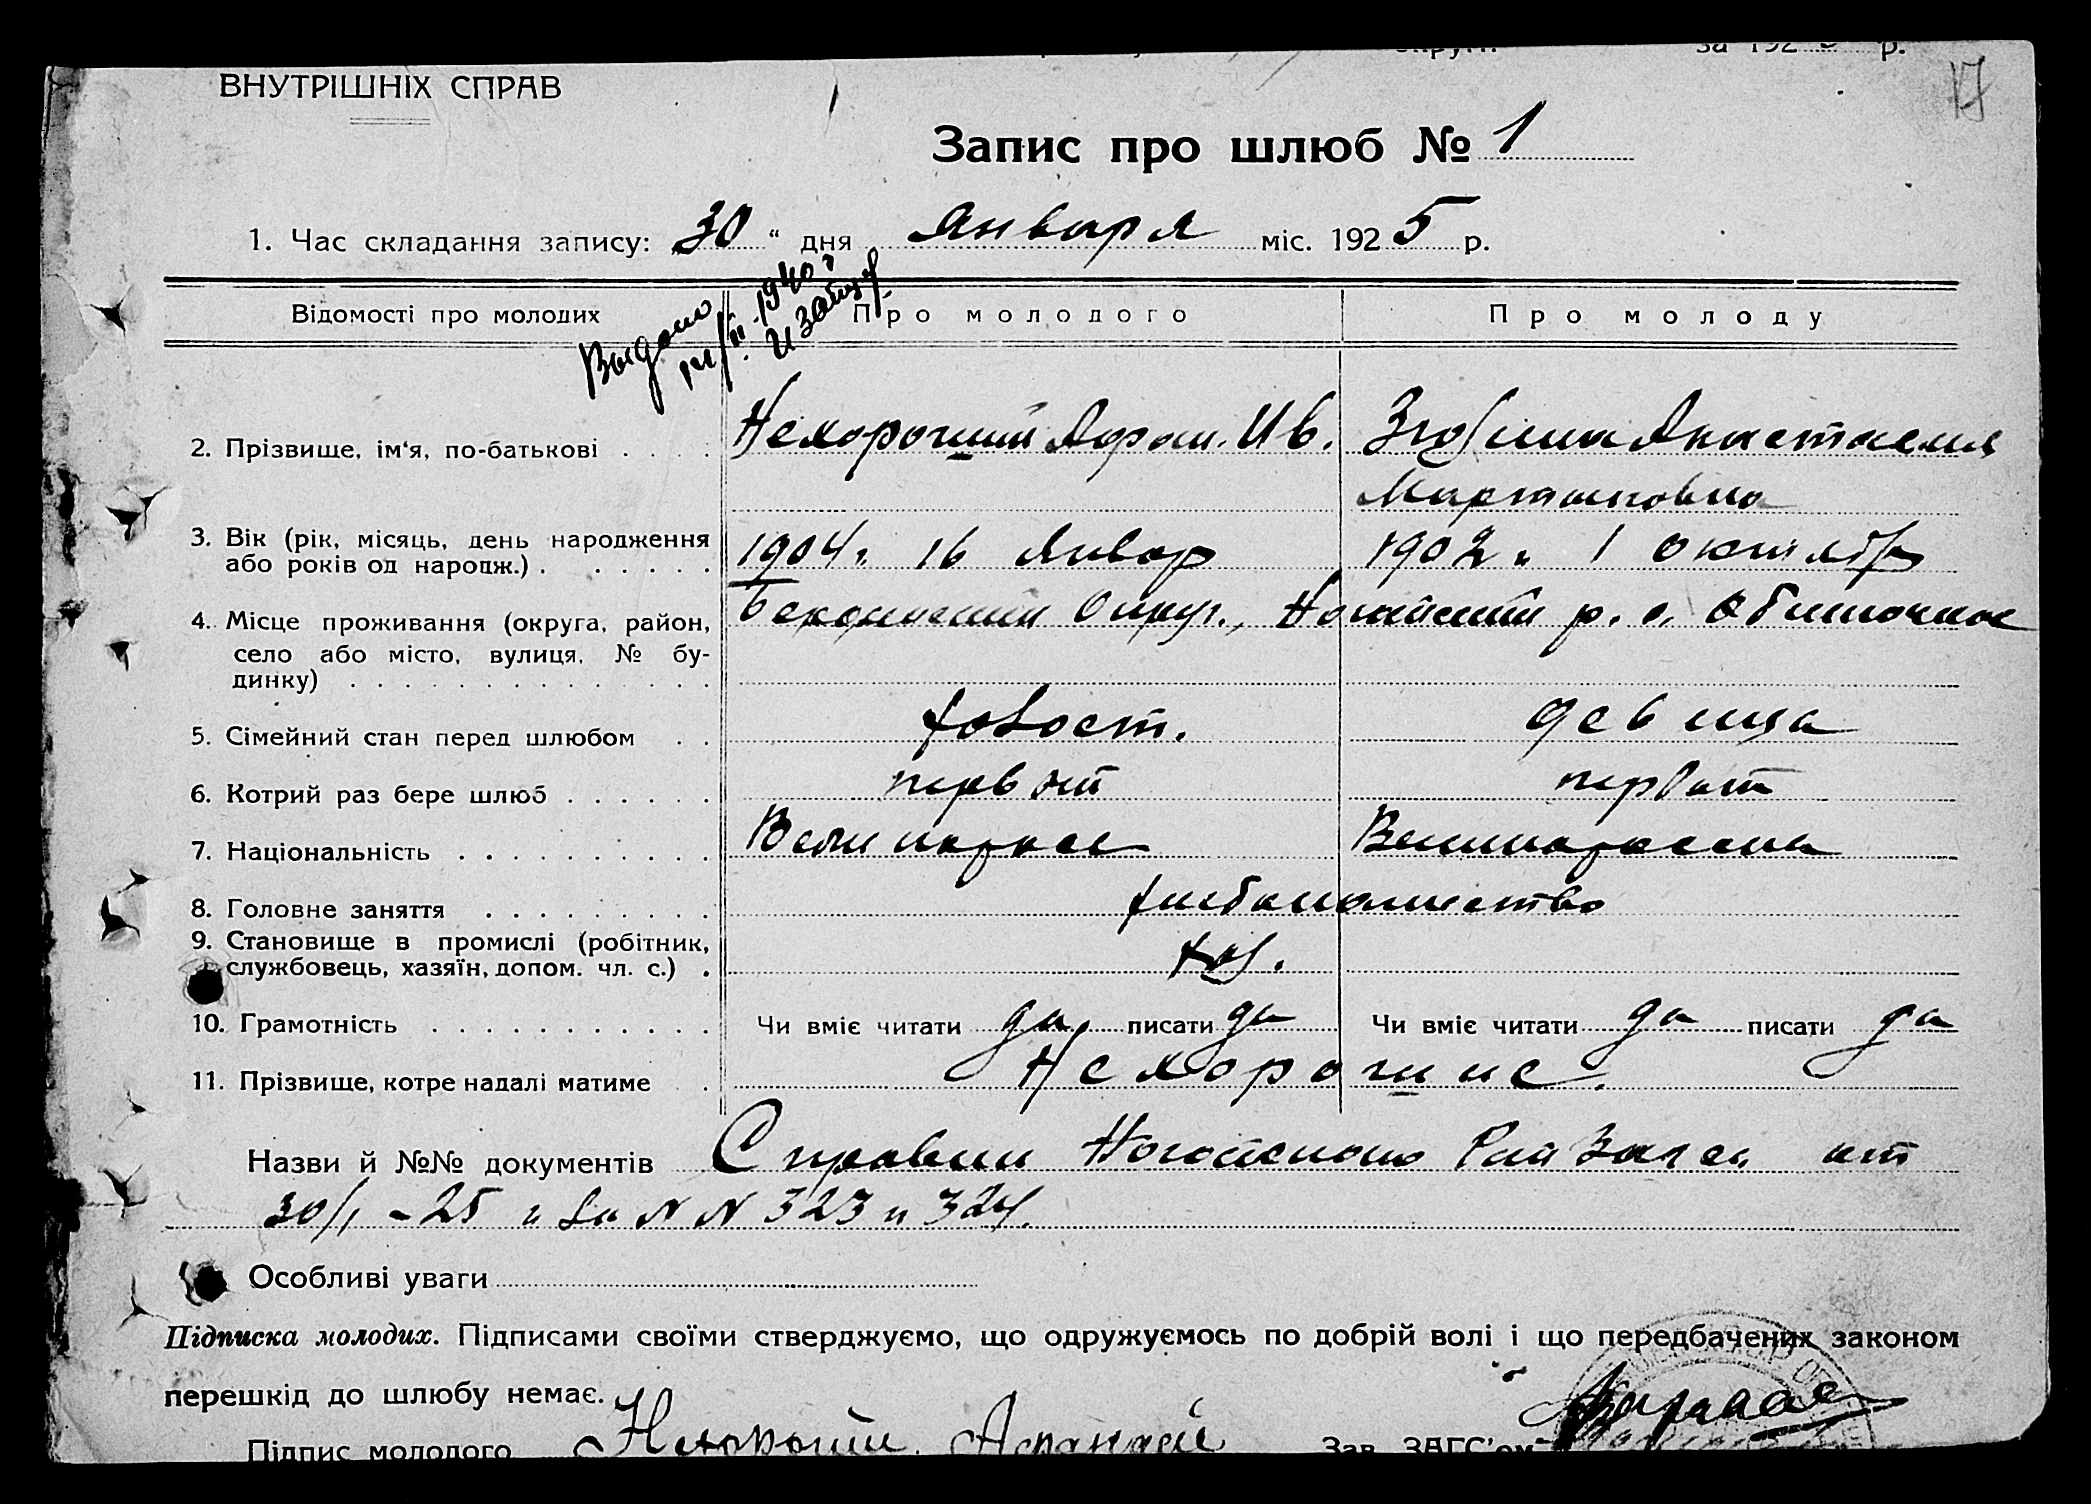 за 192 р.
17
ВНУТРІШНІХ СПРАВ
Запис про шлюб № 1
1. Час складання запису: 30 “ дня Января міс. 1925 р.
Выдано
1940 г
Відомості про молодих
Про молодого
Про молоду
2. Прізвище, ім‘я, по-батькові . . . . Нехороший Афан. Ив. Анастасия
Мартыновна
3. Вік (рік, місяць, день народження
або років од народж.) . . . . . . 1904 г. 16 Январ 1902 г. 1 октябр
4. Місце проживання (округа, район,
село або місто, вулиця, № бу-
динку) . . . . . . . . . . . . . .
Округ., Ногайский р. с. Обиточное
5. Сімейний стан перед шлюбом . . холост. девица
6. Котрий раз бере шлюб . . . . . . первый первый
7. Національність . . . . . . . . . . Великоросс Великоросска
8. Головне заняття . . . . . . . . . хлебопашество
9. Становище в промислі (робітник,
службовець, хазяїн, допом. чл. с.) . хоз.
10. Грамотність . . . . . . . . . . . Чи вміє читати да писати да Чи вміє читати да писати да
11. Прізвище, котре надалі матиме . Нехорошие.
Назви й №№ документів Справки Ногайского Рай Загса от
30/I - 25 г за N N 323 и 324.
Особливі уваги
Підписка молодих. Підписами своїми стверджуємо, що одружуємось по добрій волі і що передбачених законом
перешкід до шлюбу немає.
Підпис молодого Нехороший Афанасий Зав. ЗАГС’ом